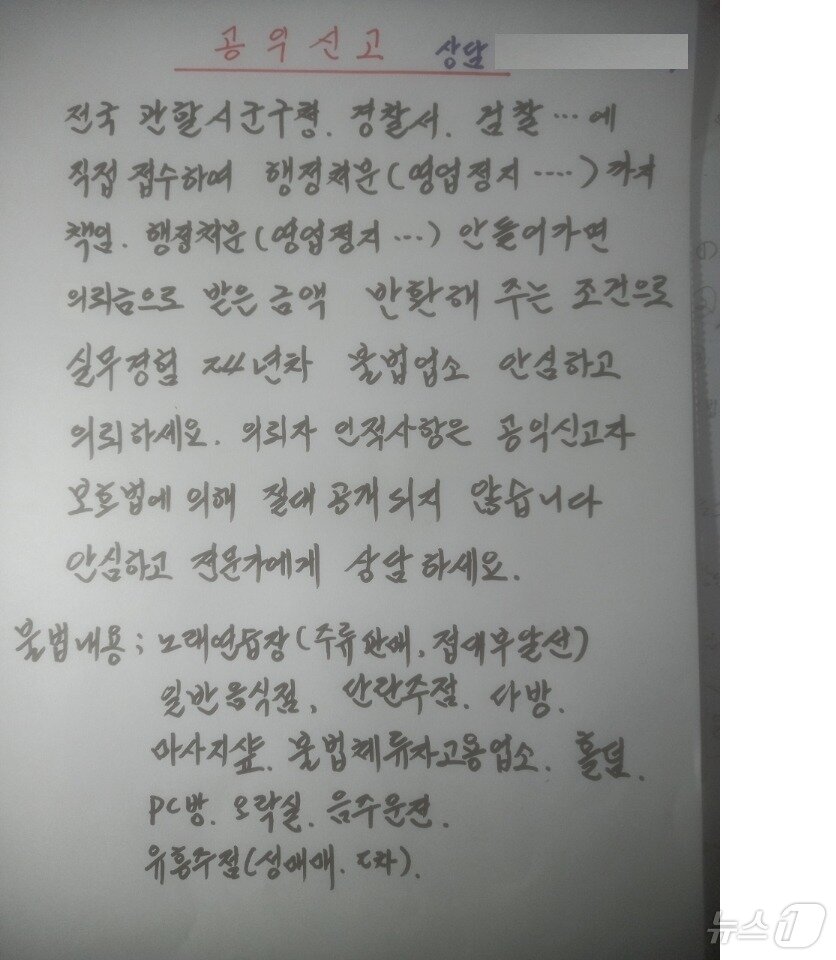 공익신고 상담
전국 관할시군구청. 경찰서. 검찰...에
직접 접수하여 행정처분(영업정지 ....)까지
책임. 행정처분(영업정지 ...) 안들어가면
의뢰금으로 받은 금액 반환해 주는 조건으로
실무경험 24년차 불법업소 안심하고
의뢰하세요. 의뢰자 인적사항은 공익신고자
보호법에 의해 절대 공개되지 않습니다
안심하고 전문가에게 상담하세요.
불법내용; 노래연습장(주류판매, 접대부알선)
일반음식점, 단란주점. 다방.
마사지샾. 불법체류자고용업소. 홀덤.
PC방. 오락실. 음주운전.
유흥주점(성매매. 2차).
뉴스1